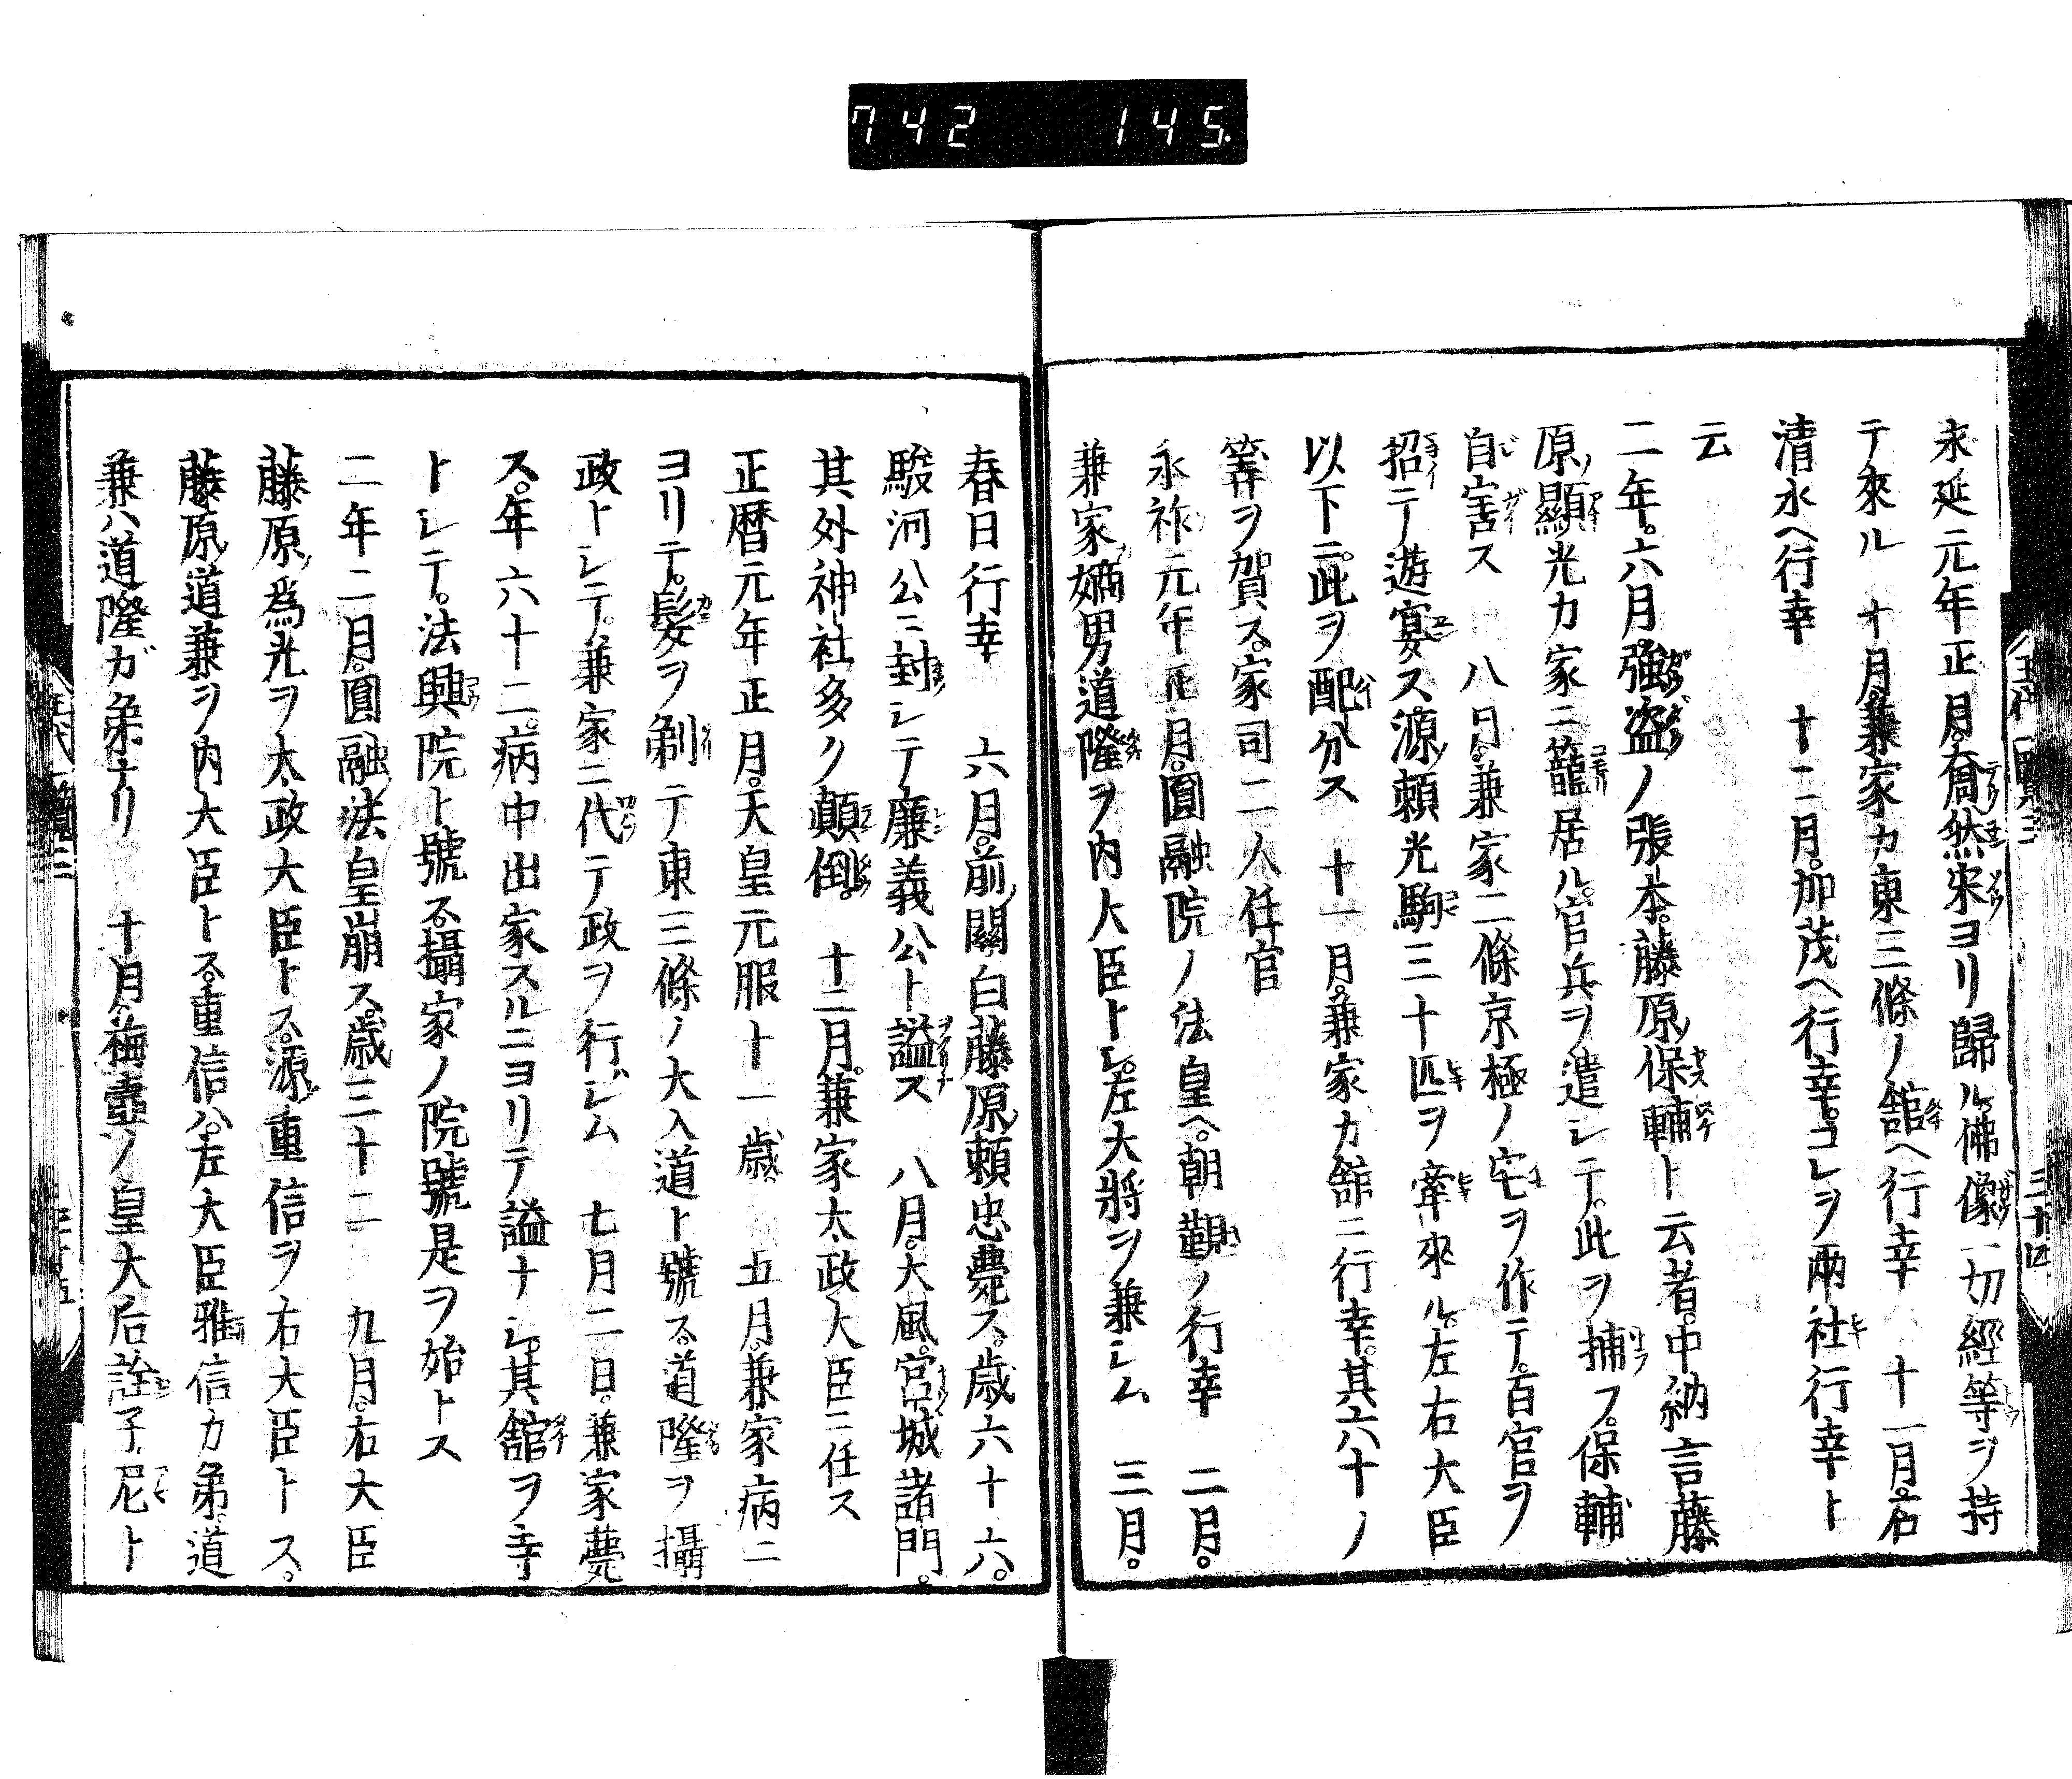 742 145
永延元年正月。奝然宋ヨリ歸ル。佛像一切經等ヲ持
テ來ル 十月。兼家カ東三條ノ舘ヘ行幸 十一月。石
清水ヘ行幸 十二月。加茂ヘ行幸。コレヲ兩社行幸ト
云
二年。六月。強盗ノ張本。藤原保輔ト云者。中納言藤
原顯光カ家ニ籠居ル。官兵ヲ遣シテ。此ヲ捕フ。保輔
自害ス 八月。兼家二條京極ノ宅ヲ作テ。百官ヲ
招テ遊宴ス源頼光駒三十匹ヲ牽來ル。左右大臣
以下ニ。此ヲ配分ス 十一月。兼家カ舘ニ行幸。其六十ノ
筭ヲ賀ス。家司二人任官
永祚元年正月。圓融院ノ法皇ヘ。朝覲ノ行幸 二月。
兼家嫡男道隆ヲ内大臣トシ。左大將ヲ兼シム 三月。
春日行幸 六月。前關白藤原頼忠薨ス。歳六十六。
駿河公ニ封シテ廉義公ト謚ス 八月。大風。宮城諸門。
其外神社多ク顛倒。 十二月。兼家太政大臣ニ任ス
正暦元年正月。天皇元服十一歳 五月。兼家病ニ
ヨリテ。髮ヲ剃テ東三條ノ大入道ト號ス。道隆ヲ攝
政トシテ。兼家ニ代テ政ヲ行シム 七月二日。兼家薨
ス。年六十二。病中出家スルニヨリテ謚ナシ。其舘ヲ寺
トシテ。法興院ト號ス。攝家ノ院號是ヲ始トス
二年二月。圓融法皇崩ス。歳三十二 九月。右大臣
藤原爲光ヲ太政大臣トス。源重信ヲ右大臣トス。
藤原道兼ヲ内大臣トス。重信ハ。左大臣雅信カ弟。道
兼ハ道隆ガ弟ナリ 十月。梅壺ノ皇大后詮子。尼ト